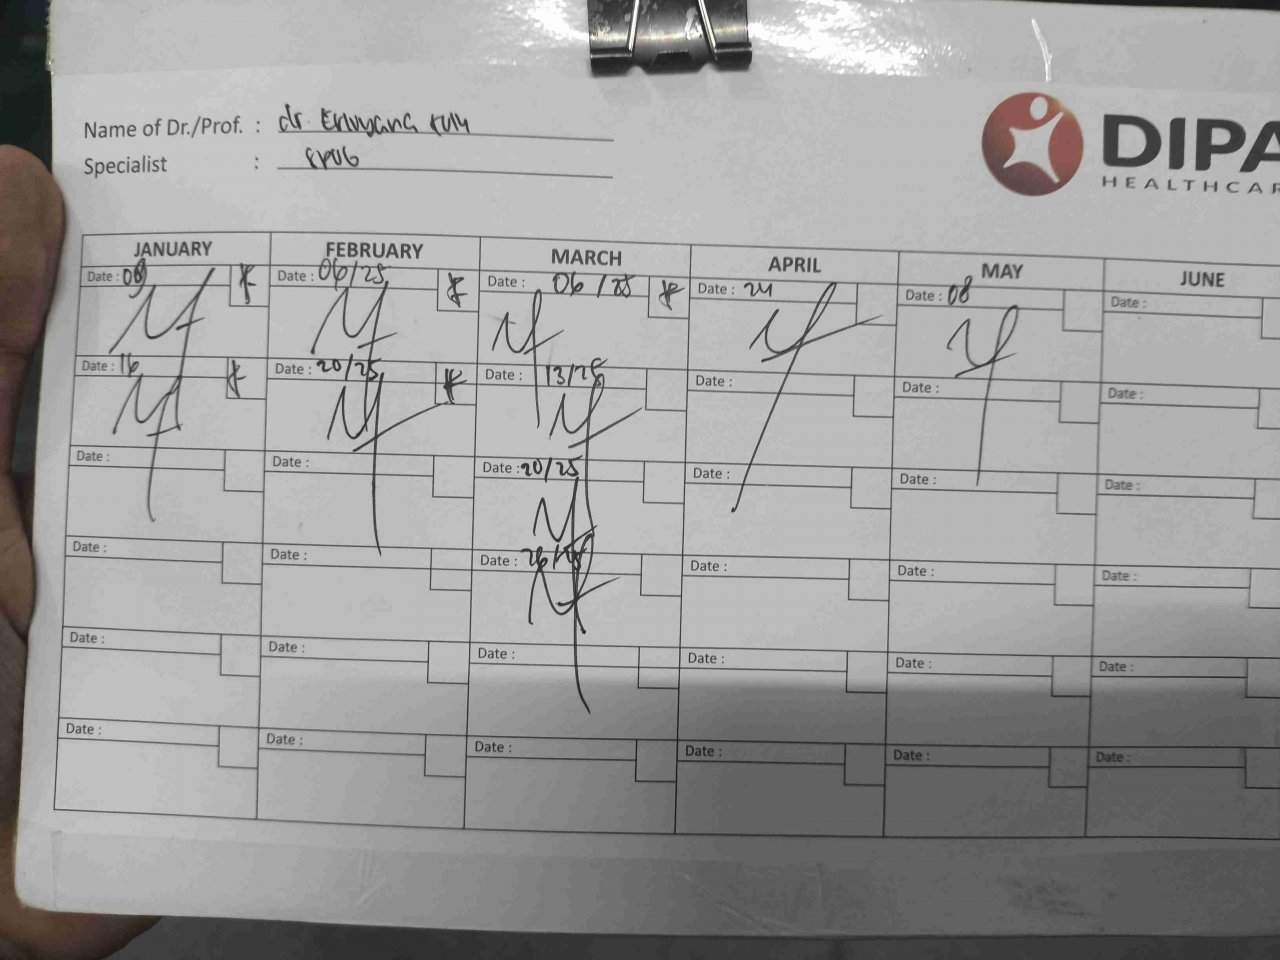 Name of Dr./Prof. : dr.
Specialist :
DIPA
HEALTHCAR
JANUARY FEBRUARY MARCH APRIL MAY JUNE
Date : 08 Date : 06/25 Date : 06/25 Date : 24 Date : 08 Date :
Date : 16 Date : 20/25 Date : 13/25 Date : Date : Date :
Date : Date : Date : 20/25 Date : Date : Date :
Date : Date : Date : Date : Date : Date :
Date : Date : Date : Date : Date : Date :
Date : Date : Date : Date : Date : Date :